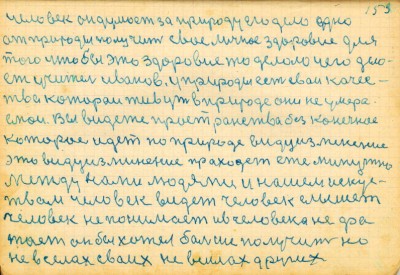 159
человек он думает за природу его дело одно
от природы получит свое личное здоровие для
того чтобы это здоровие то делало чего дно-
ет учител иванов. у природы ест свои качес-
тва которои живут в природе они не умера-
емои. Вы видете пространства без конечное
которое идет по природе видуизминение
это видуизминение праходет ежеминутно
между нами людями и нашем искус-
твам человек видет человек слышет
человек не понимает и в человека не
он бы хотел болше получит но
не в силах своих не в силах других